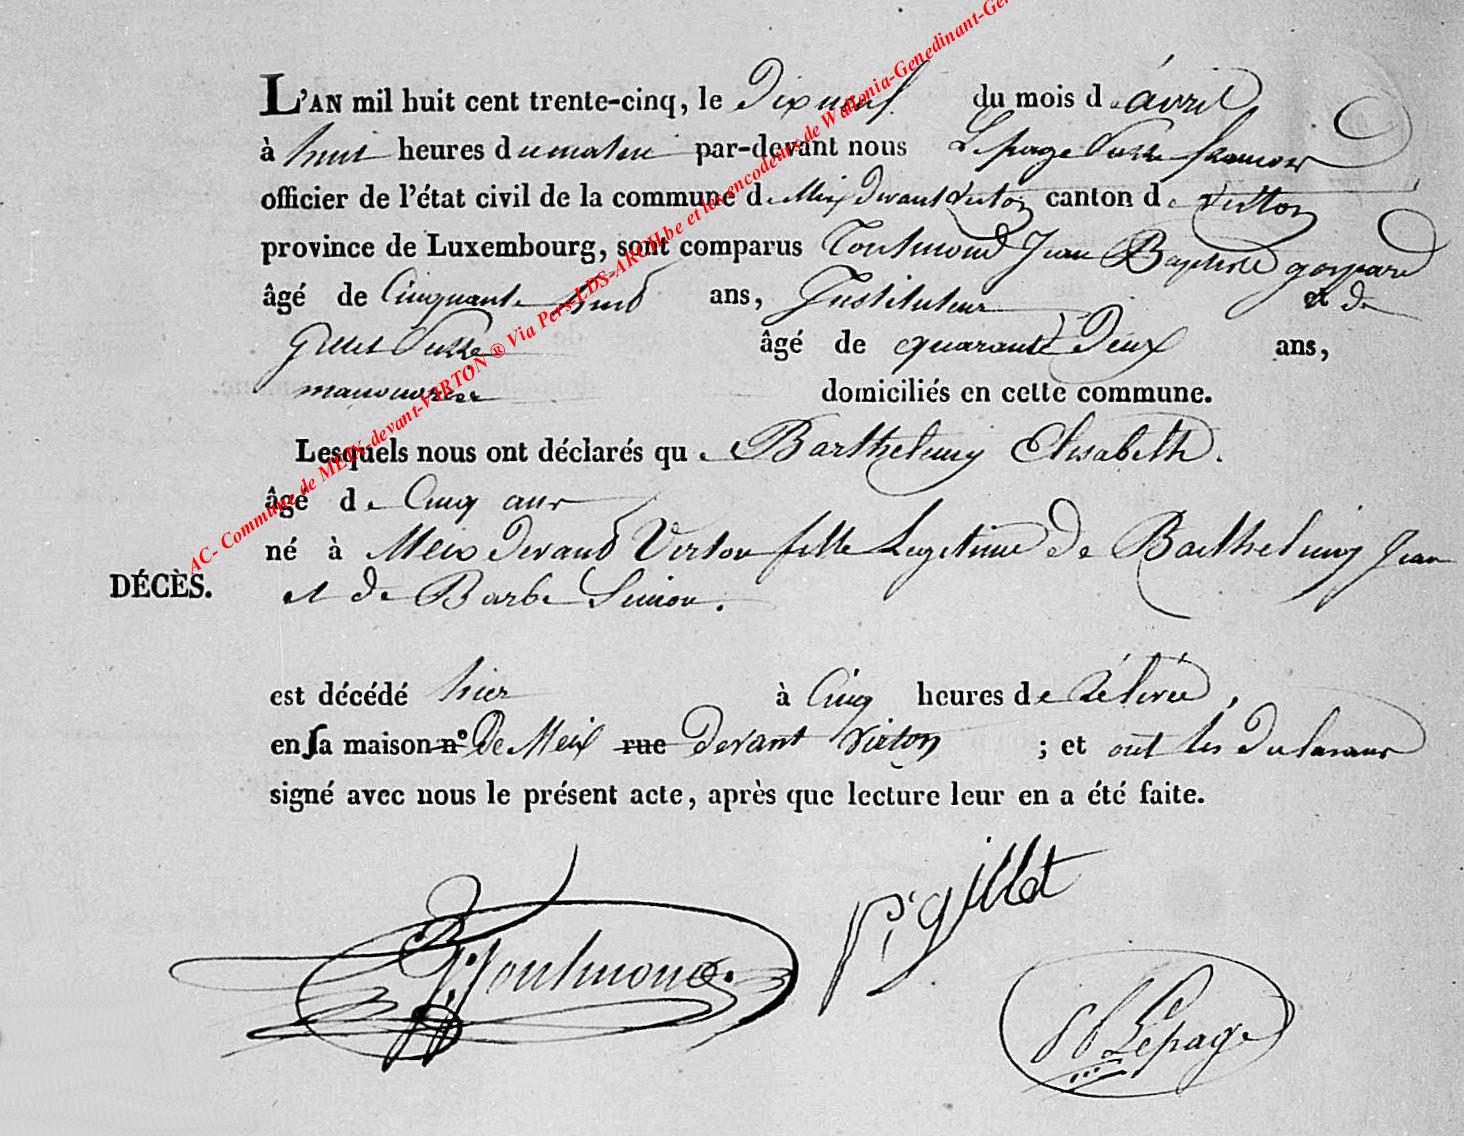 L'AN mil huit cent trente-cinq, le Dix neuf du mois d'avril
à huit heures du matin par-devant nous Lepage Pierre françois
officier de l'état civil de la commune de Meix Devant Virton canton de Virton
province de Luxembourg, sont comparus Toulmond Jean Baptiste gaspard
âgé de Cinquante ans, Instituteur et de
Pierre âgé de quarante Deux ans,
manouvrier domiciliés en cette commune.
Lesquels nous ont déclarés que Barthelemy Elisabeth.
âgé de Cinq ans
né à Meix Devant Virton fille Legitime de Barthelemy Jean
DÉCÈS. et de Barbe Simon.
est décédé hier à Cinq heures de relevée,
en sa maison n° De Meix rue devant Virton ; et ont les Declarans
signé avec nous le présent acte, après que lecture leur en a été faite.
Toulmond. P. gillet
Lepage
AC- Commune de MEIX-devant-VIRTON ® Via Pers-LDS-ARCH.be et les encodeurs de Wallonia-Genedinant-Gen